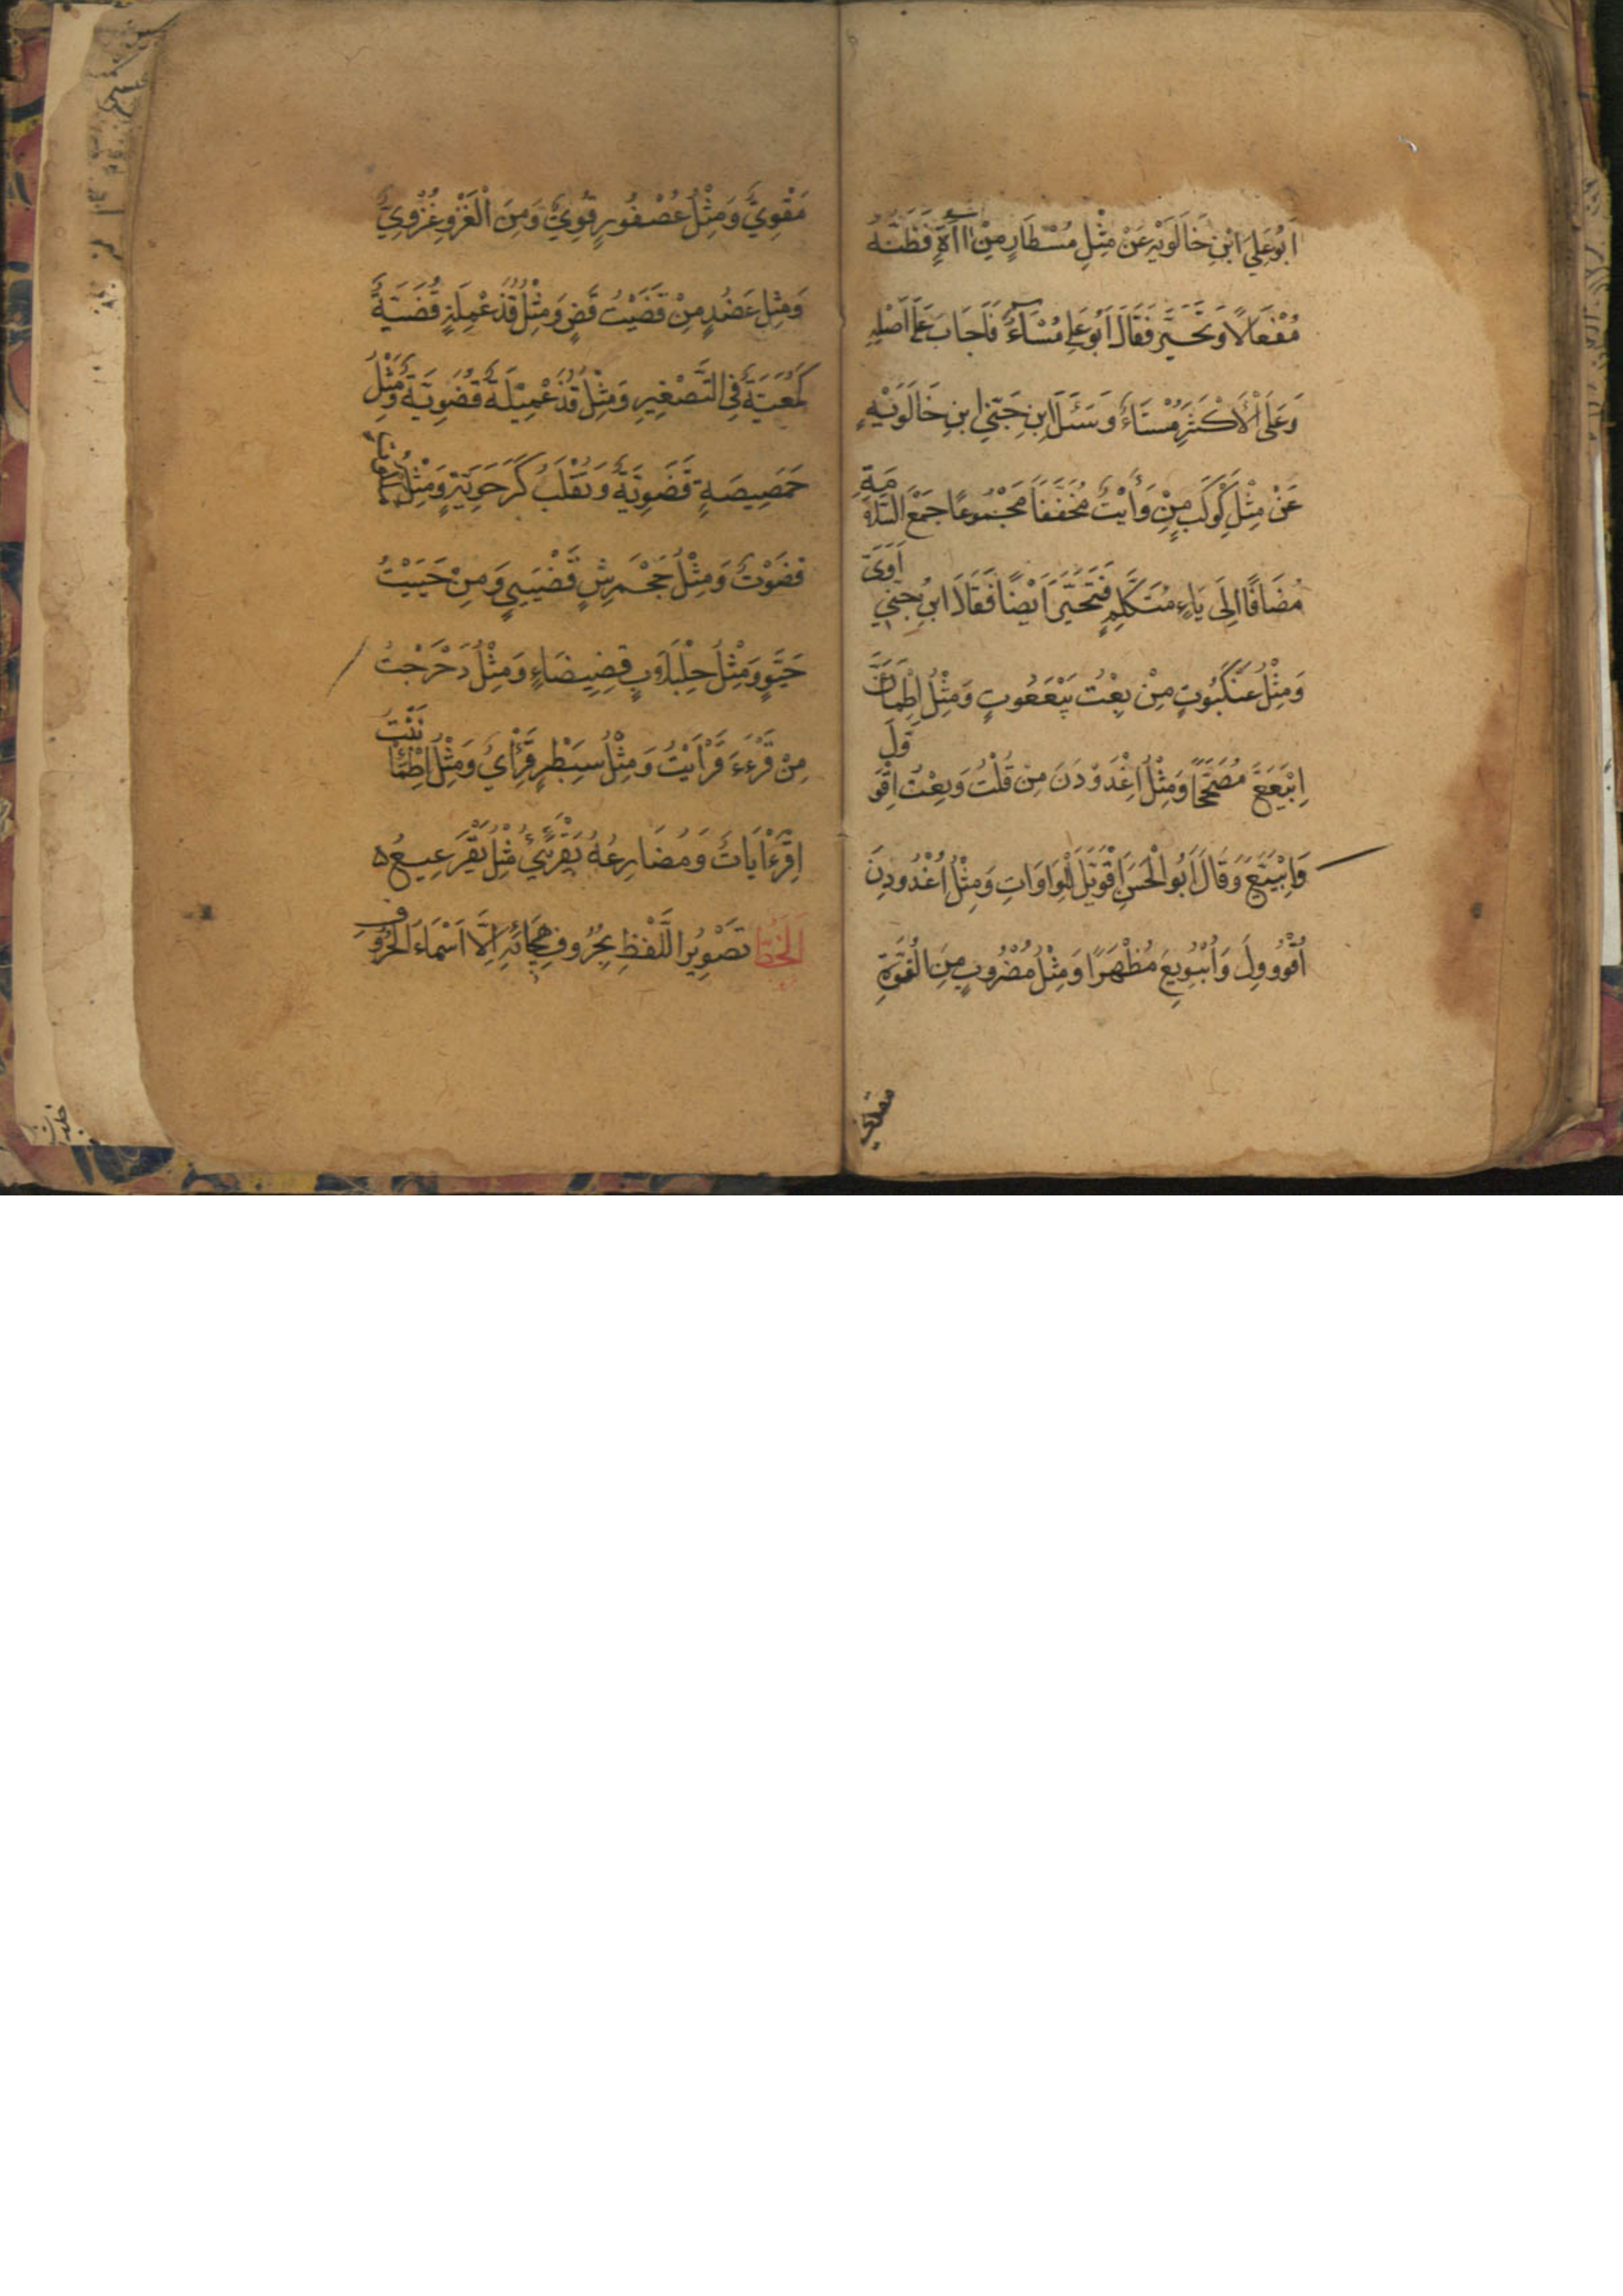 اَبُو عَلِيٍّ ابْنِ خَالَوَيْهِ عَنْ مِثْلِ مُسْطَارٍ مِنْ اآأَةٍ فَظَنَّهُ
مُفْعَالاً وَتَحَيَّرَ فَقَالَ اَبُو عَلِي مُسْاَءٌ فَاَجَابَ عَلَى اَصْلِهِ
وَعَلَى الْاَكْثَرِ مُسْتَاءٌ وَسَئَلَ ابْنِ جِنّي ابنِ خَالَوَيْهِ
عَنْ مِثْلِ كَوْكَبٍ مِنْ وَأَيْتُ مُخَفَّفًا مَجْمُوعًا جَمْعَ السَّلَامَةِ
مُضَافًا اِلَى يَاءِ مُتَكَلِّمٍ فَتَحَيَّرَ اَيْضًا فَقَالَ ابنِ جِنّي اَوَيَّ
وَمِثْلُ عَنْكَبُوتٍ مِنْ بِعْتُ بَيْعَعُوتٍ وَمِثْلُ اِطْمَاَنَّ
اِبْيَعَعَّ مُصَحَّحًا وَمِثْلُ اِغْدَوْدَنَ مِنْ قُلْتُ وَبِعْتُ اِقْوَوَّلَ
وَابْيَيَّعَ وَقَالَ اَبُو الْحَسَنِ اِقْوَيَّلَ لِلْوَاوَاتِ وَمِثْلُ اُغْدُودِنَ
اُقْوُووِلَ وَاُبْيُويِعَ مُظْهَرًا وَمِثْلُ مَضْرُوبٍ مِنَ الْقُوَّةِ
مَقْوِيٌّ وَمِثْلُ عُصْفُورٍ قُوِيٌّ وَمِنَ الْغَزْوِ غُزْوِيٌّ
وَمِثْلِ عَضُدٍ مِنْ قَضَيْتُ قَضٍ وَمِثْلُ قُذَعْمِلَةٍ قُضَيَّةٌ
كَمُعَيَّةٍ فِي التَّصْغِيرِ وَمِثْلُ قُذَعْمِيْلَةٌ قُضَوِيَّةٌ وَمِثْلُ
حَمَصِيصَةٍ قَضَوِيَّةٌ وَتُقْلَبُ كَرَحَوِيَّةٍ وَمِثْلُ
قضَوْتٌ وَمِثْلُ جَحْمَرِشٍ قَضْيَيِي وَمِنْ حَيَيْتُ
حَيَّوٍ وَمِثْلُ حِلِبْلَابٍ قِضِيضَاءٍ وَمِثْلُ دَحْرَجْتُ
مِنْ قَرْءَءَ قَرْاَيْتُ وَمِثْلُ سِبَطْرٍ قِرَأْيٌ وَمِثْلُ اِطْمَأْنَنْتُ
اِقْرَءْاَيَاتُ وَمُضَارِعُهُ يَقْرَئِيُّ مِثْلُ يَقْرَعِيعُ ه
اَلْخَطُّ تَصْوِيرُ اللَّفْظِ بِحُرُوفِ هِجَائِهِ اِلَّا اَسْمَاءَ الْحُرُوفِ